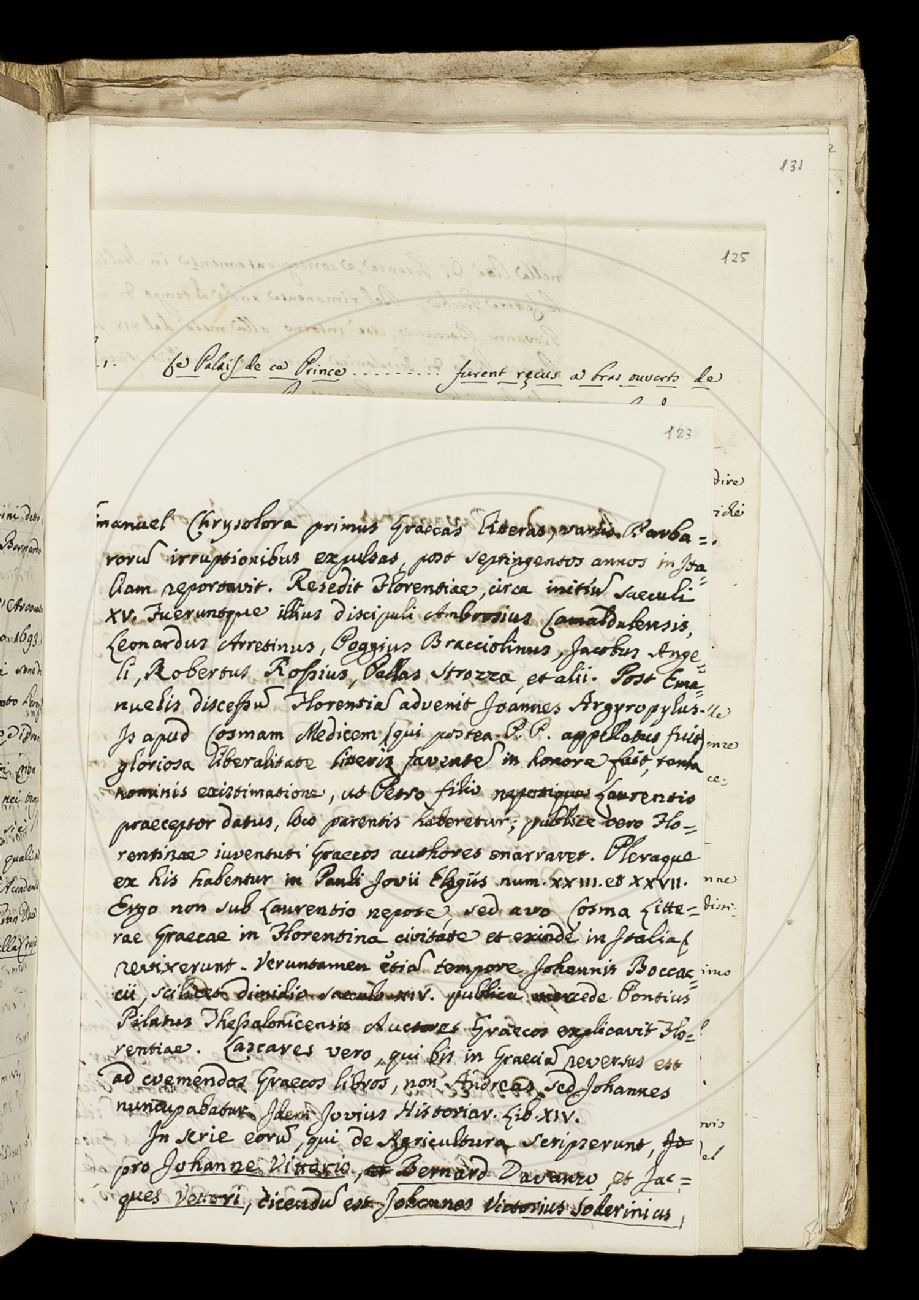 131
125
Le Palais de ce Prince . . . . . . . . . furent reçus a bras ouverts de
123
manuel Chrysolora primus Graecas litteras, variis Barba=
rorū irruptionibus expulsas, post septingentos annos in Ita=
liam reportavit. Resedit Florentiae, circa initiū saeculi
XV. Fueruntque illius discipuli Ambrosius Camaldulensis,
Leonardus Arretinus, Poggius Bracciolinus, Jacobus Ange=
li, Robertus Rossius, Pallas Strozza, et alii. Post Ema=
nuelis discessū Florentiā advenit Joannes Argyropylus.
Is apud Cosmam Medicem (qui postea P. P. appellatus fuit)
gloriosa liberalitate litteris faventē in honore fuit, tanta
nominis existimatione, ut Petro filio nepotique Laurentio
praeceptor datus, loco parentis haberetur; publice vero Flo=
rentinae iuventuti Graecos authores enarraret. Pleraque
ex his habentur in Pauli Jovii Elogiis num. XXIII. et XXVII.
Ergo non sub Laurentio nepote, sed avo Cosma Litte=
rae Graecae in Florentina civitate et exinde in Italia
revixerunt. Veruntamen etiā tempore Johannis Boccac=
cii, scilicet dimidio saeculo XIV. publica mercede Pontius
Pilatus Thessalonicensis Auctores Graecos explicavit Flo=
rentiae. Lascares vero, qui bis in Graeciā reversus est
ad evemendos Graecos libros, non Andreas, sed Johannes
nuncupabatur. Idem Jovius Historiar. Lib. XIV.
In serie eorū, qui de Agricultura scripserunt,
pro Johanne Vittorio, et Bernard Davanzo, et Jac=
ques Vettori, dicendū est Johannes Victorius Soderinius,